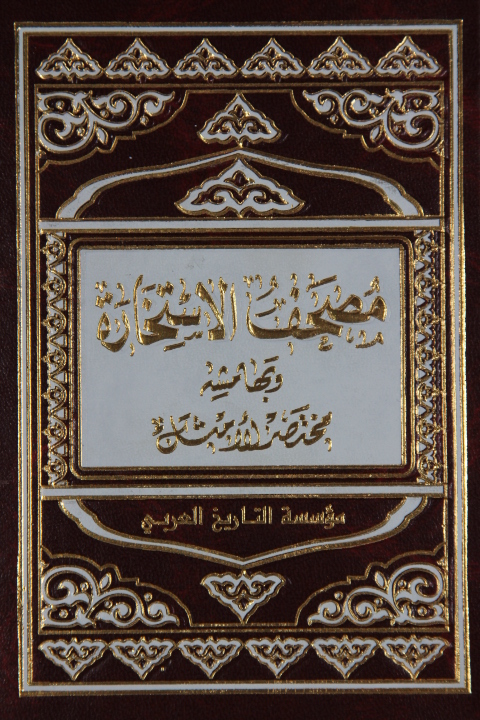 مُصْحَفُ الاِسْتِخَارَة
وبهامشه
مختصر الأمثل
مؤسسة التاريخ العربي